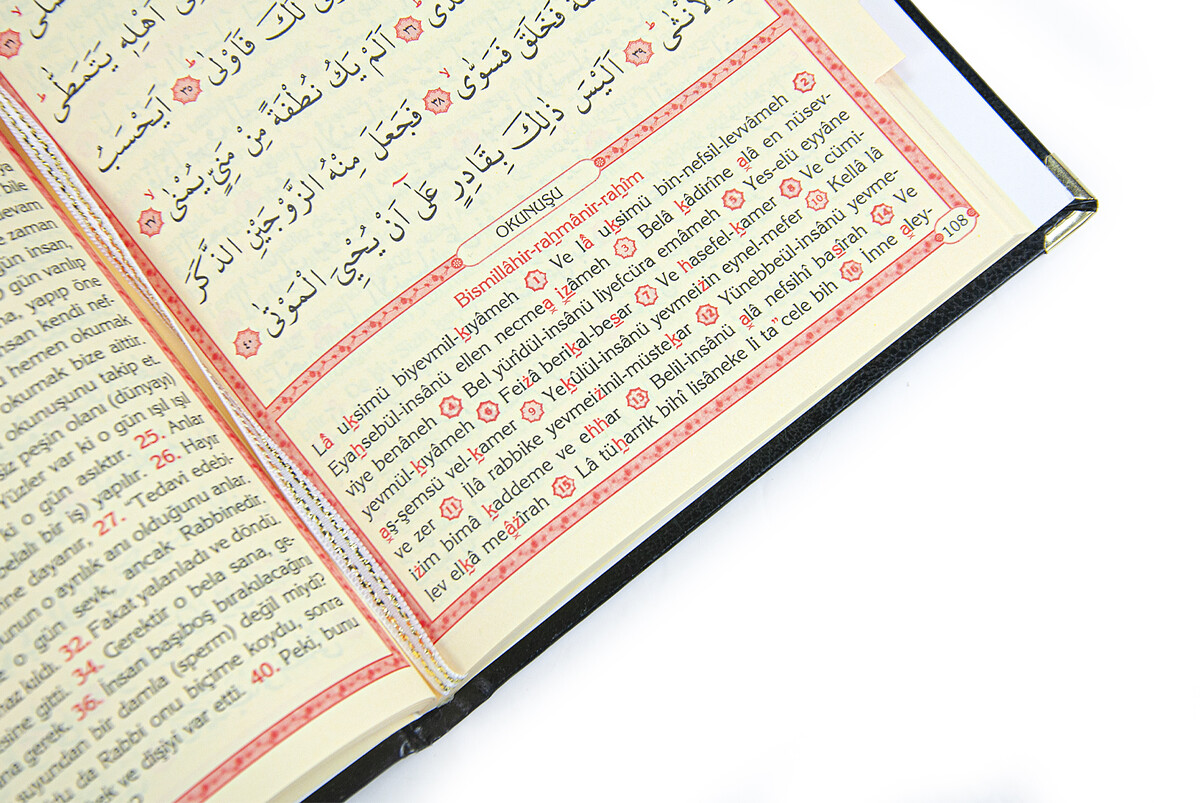 اَهْلِه۪ يَتَمَطّٰى
لَكَ فَاَوْلٰى ﴿٣٥﴾ اَيَحْسَبُ
﴿٣٦﴾ اَلَمْ يَكُ نُطْفَةً مِنْ مَنِيٍّ يُمْنٰى ﴿٣٧﴾
فَخَلَقَ فَسَوّٰى ﴿٣٨﴾ فَجَعَلَ مِنْهُ الزَّوْجَيْنِ الذَّكَرَ
وَالْاُنْثٰى ﴿٣٩﴾ اَلَيْسَ ذٰلِكَ بِقَادِرٍ عَلٰٓى اَنْ يُحْيِيَ الْمَوْتٰى ﴿٤٠﴾
OKUNUŞU
Bismillâhir-rahmânir-rahîm
Lâ uksimü biyevmil-kıyâmeh 1 Ve lâ uksimü bin-nefsil-levvâmeh 2
Eyahsebül-insânü ellen necmea izâmeh 3 Belâ kâdirîne alâ en nüsev-
viye benâneh 4 Bel yürîdül-insânü liyefcüra emâmeh 5 Yes-elü eyyâne
yevmül-kıyâmeh 6 Feiżâ berikal-besar 7 Ve hasefel-kamer 8 Ve cümi-
aş-şemsü vel-kamer 9 Yekûlül-insânü yevmeiżin eynel-mefer 10 Kellâ lâ
ve zer 11 İlâ rabbike yevmeiżinil-müstekar 12 Yünebbeül-insânü yevme-
iżim bimâ kaddeme ve ehhar 13 Belil-insânü alâ nefsihî basîrah 14 Ve
lev elkâ meâżîrah 15 Lâ tüharrik bihî lisâneke li ta"cele bih 16 İnne aley-
108
bile
devam
zaman
gün insan,
gün varılıp
yapıp öne
insan kendi nef-
hemen okumak
okumak bize aittir.
okunuşunu takip et.
siz peşin olanı (dünyayı)
Yüzler var ki o gün ışıl ışıl
ki o gün asıktır. 25. Anlar
belalı bir iş) yapılır. 26. Hayır
dayanır, 27. "Tedavi edebi-
bunun o ayrılık anı olduğunu anlar.
o gün sevk, ancak Rabbinedir.
kıldı. 32. Fakat yalanladı ve döndü.
gitti. 34. Gerektir o bela sana, ge-
gerek. 36. İnsan başıboş bırakılacağını
suyundan bir damla (sperm) değil miydi?
da Rabbi onu biçime koydu, sonra
ve dişiyi var etti. 40. Peki, bunu